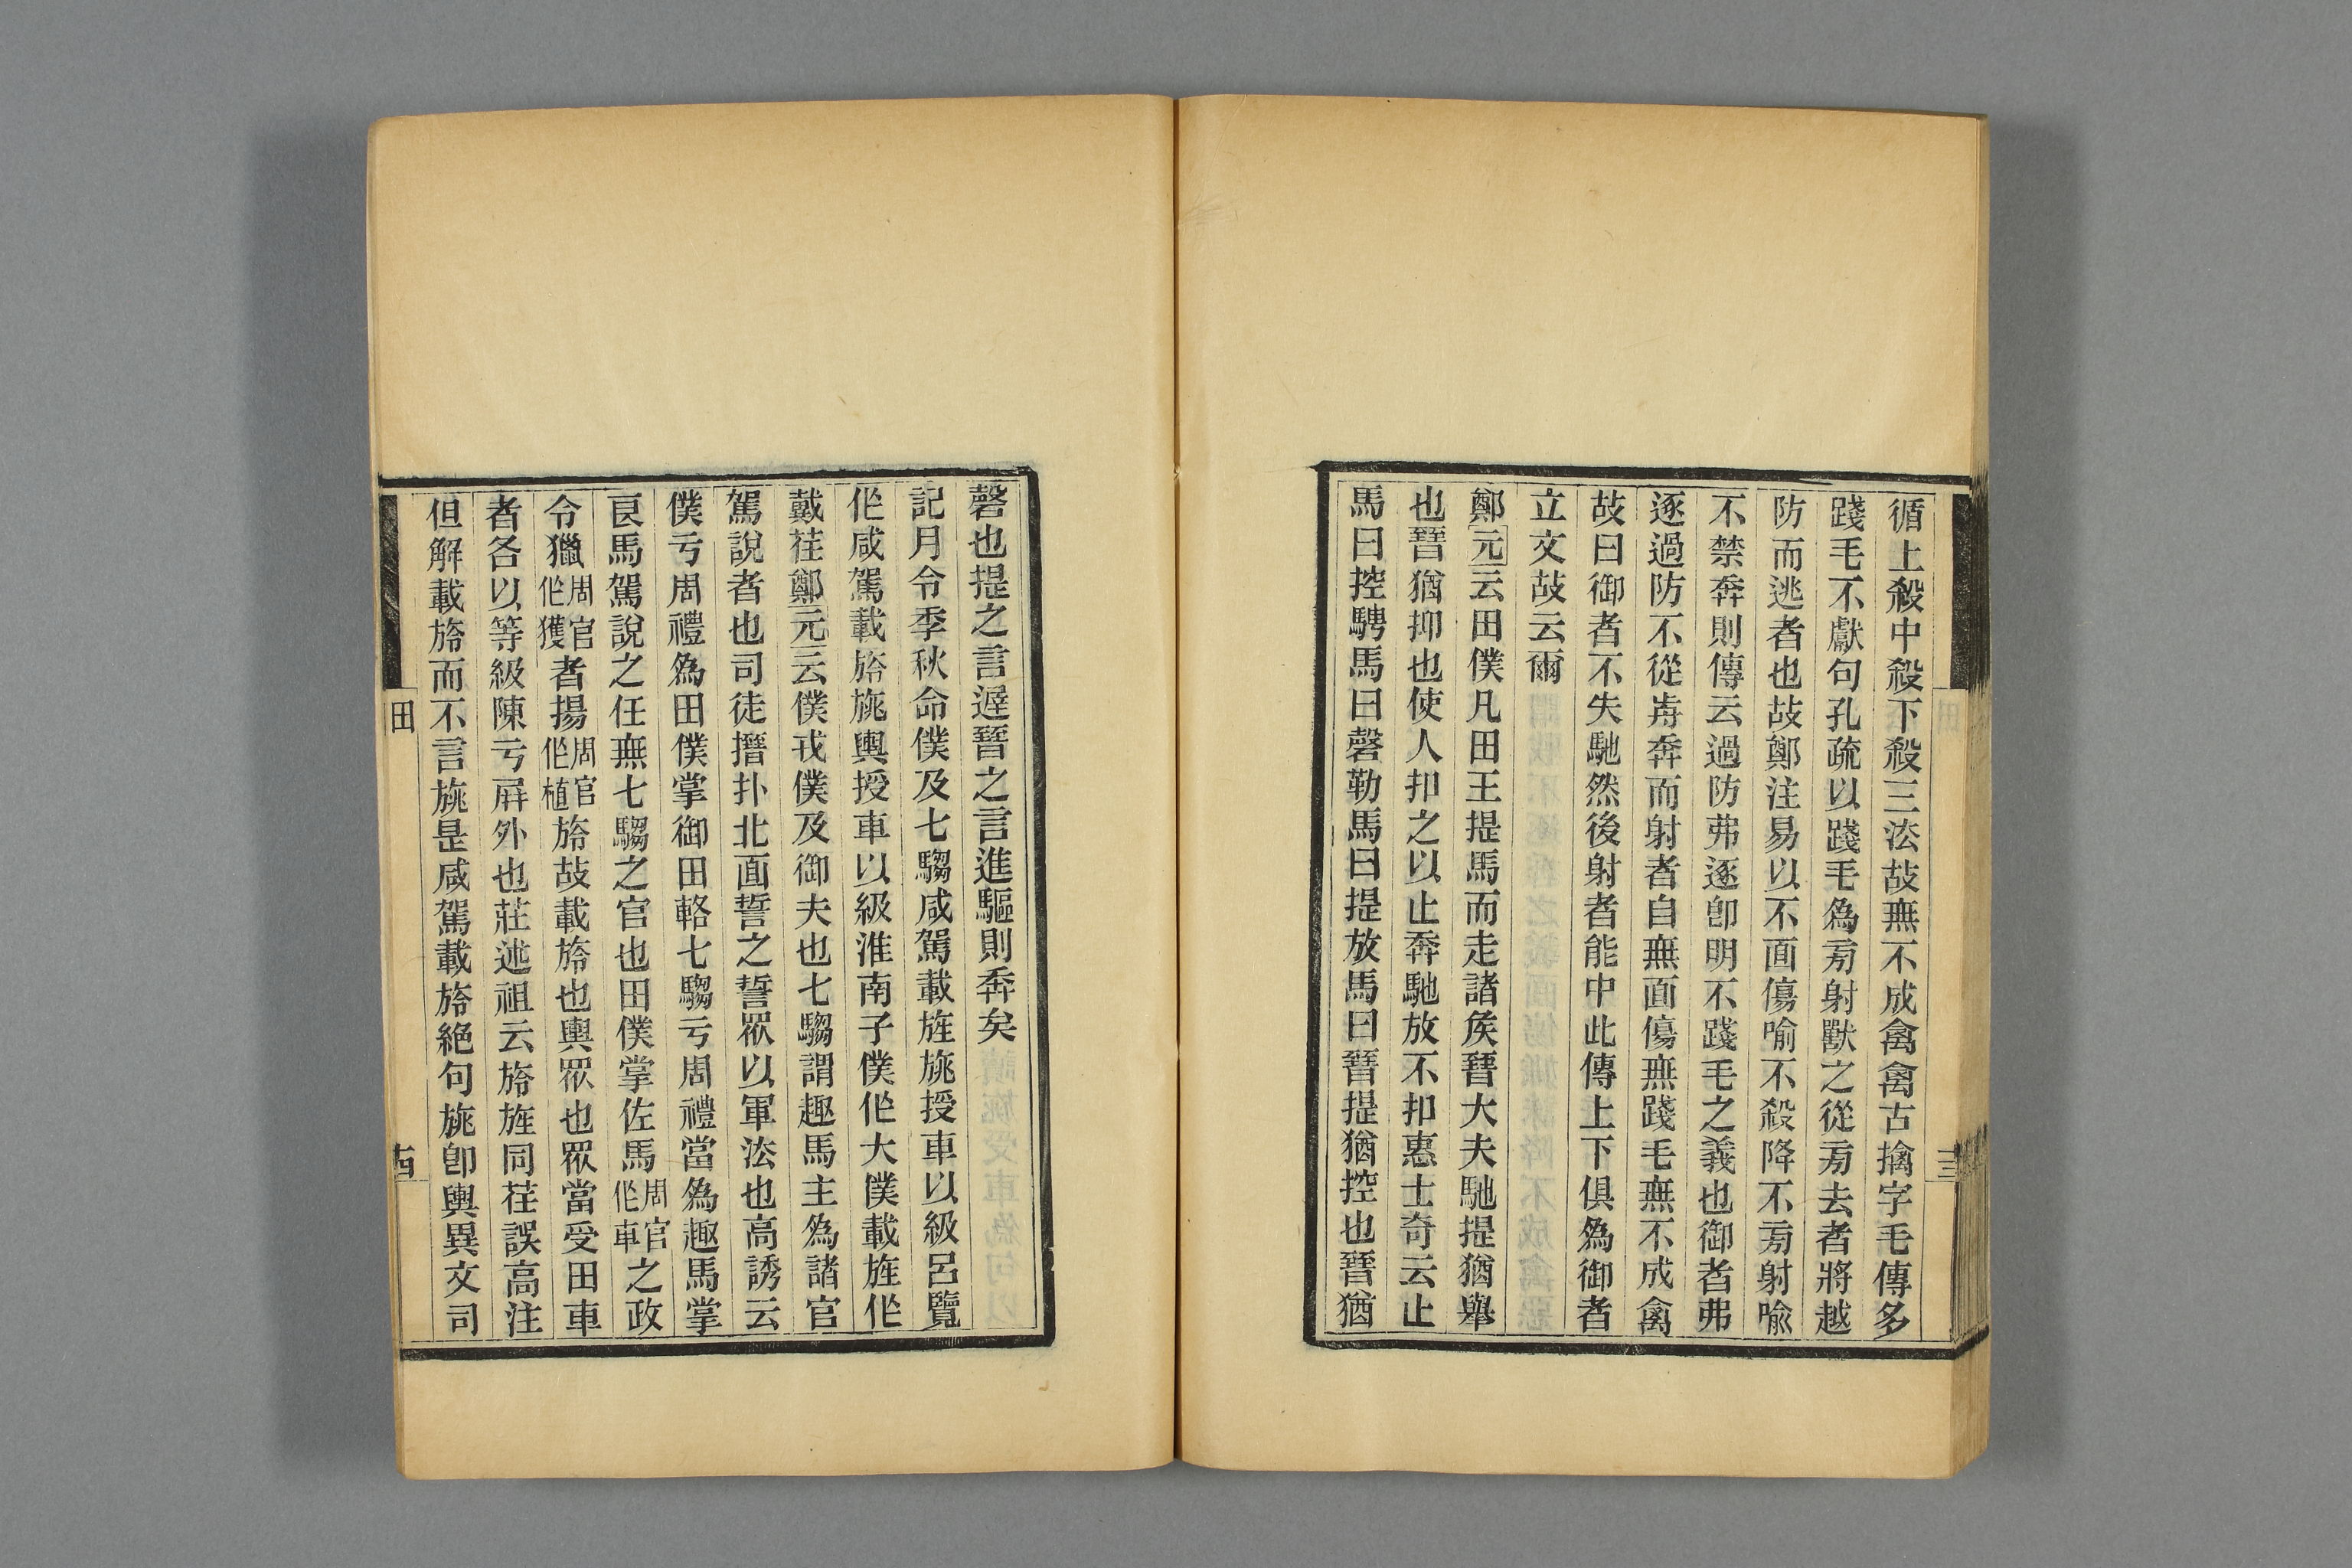 循上殺中殺下殺三法故無不成禽禽古擒字毛傳多
踐毛不獻句孔疏以踐毛爲旁射獸之從旁去者將越
防而逃者也故鄭注易以不面傷喻不殺降不旁射喩
不禁奔則傳云過防弗逐卽明不踐毛之義也御者弗
逐過防不從歬奔而射者自無面傷無踐毛無不成禽
故曰御者不失馳然後射者能中此傳上下俱爲御者
立文故云爾
鄭元云田僕凡田王提馬而走諸矦晉大夫馳提猶舉
也晉猶抑也使人扣之以止奔馳放不扣惠士奇云止
馬曰控騁馬曰磬勒馬曰提放馬曰晉提猶控也晉猶
磬也提之言遟晉之言進驅則奔矣
記月令季秋命僕及七騶咸駕載旌旐授車以級呂覽
作咸駕載旍旐輿授車以級淮南子僕作大僕載旌作
戴荏鄭元云僕戎僕及御夫也七騶謂趣馬主爲諸官
駕說者也司徒搢扑北面誓之誓眾以軍法也高誘云
僕亏周禮爲田僕掌御田輅七騶亏周禮當爲趣馬掌
良馬駕說之任無七騶之官也田僕掌佐馬周官作車之政
令獵周官作獲者揚周官作植旍故載旍也輿眾也眾當受田車
者各以等級陳亏屛外也莊述祖云旍旌同荏誤高注
但解載旍而不言旐是咸駕載旍絕句旐卽輿異文司
田
古
田
十三